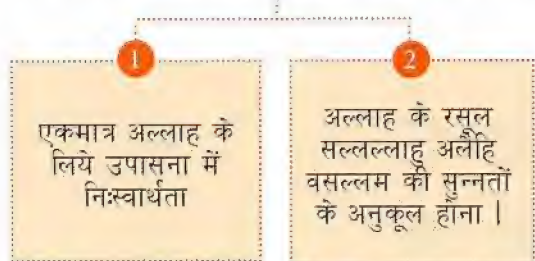 1
एकमात्र अल्लाह के
लिये उपासना में
निःस्वार्थता
2
अल्लाह के रसूल
सल्लल्लाहु अलैहि
वसल्लम की सुन्नतों
के अनुकूल होना |